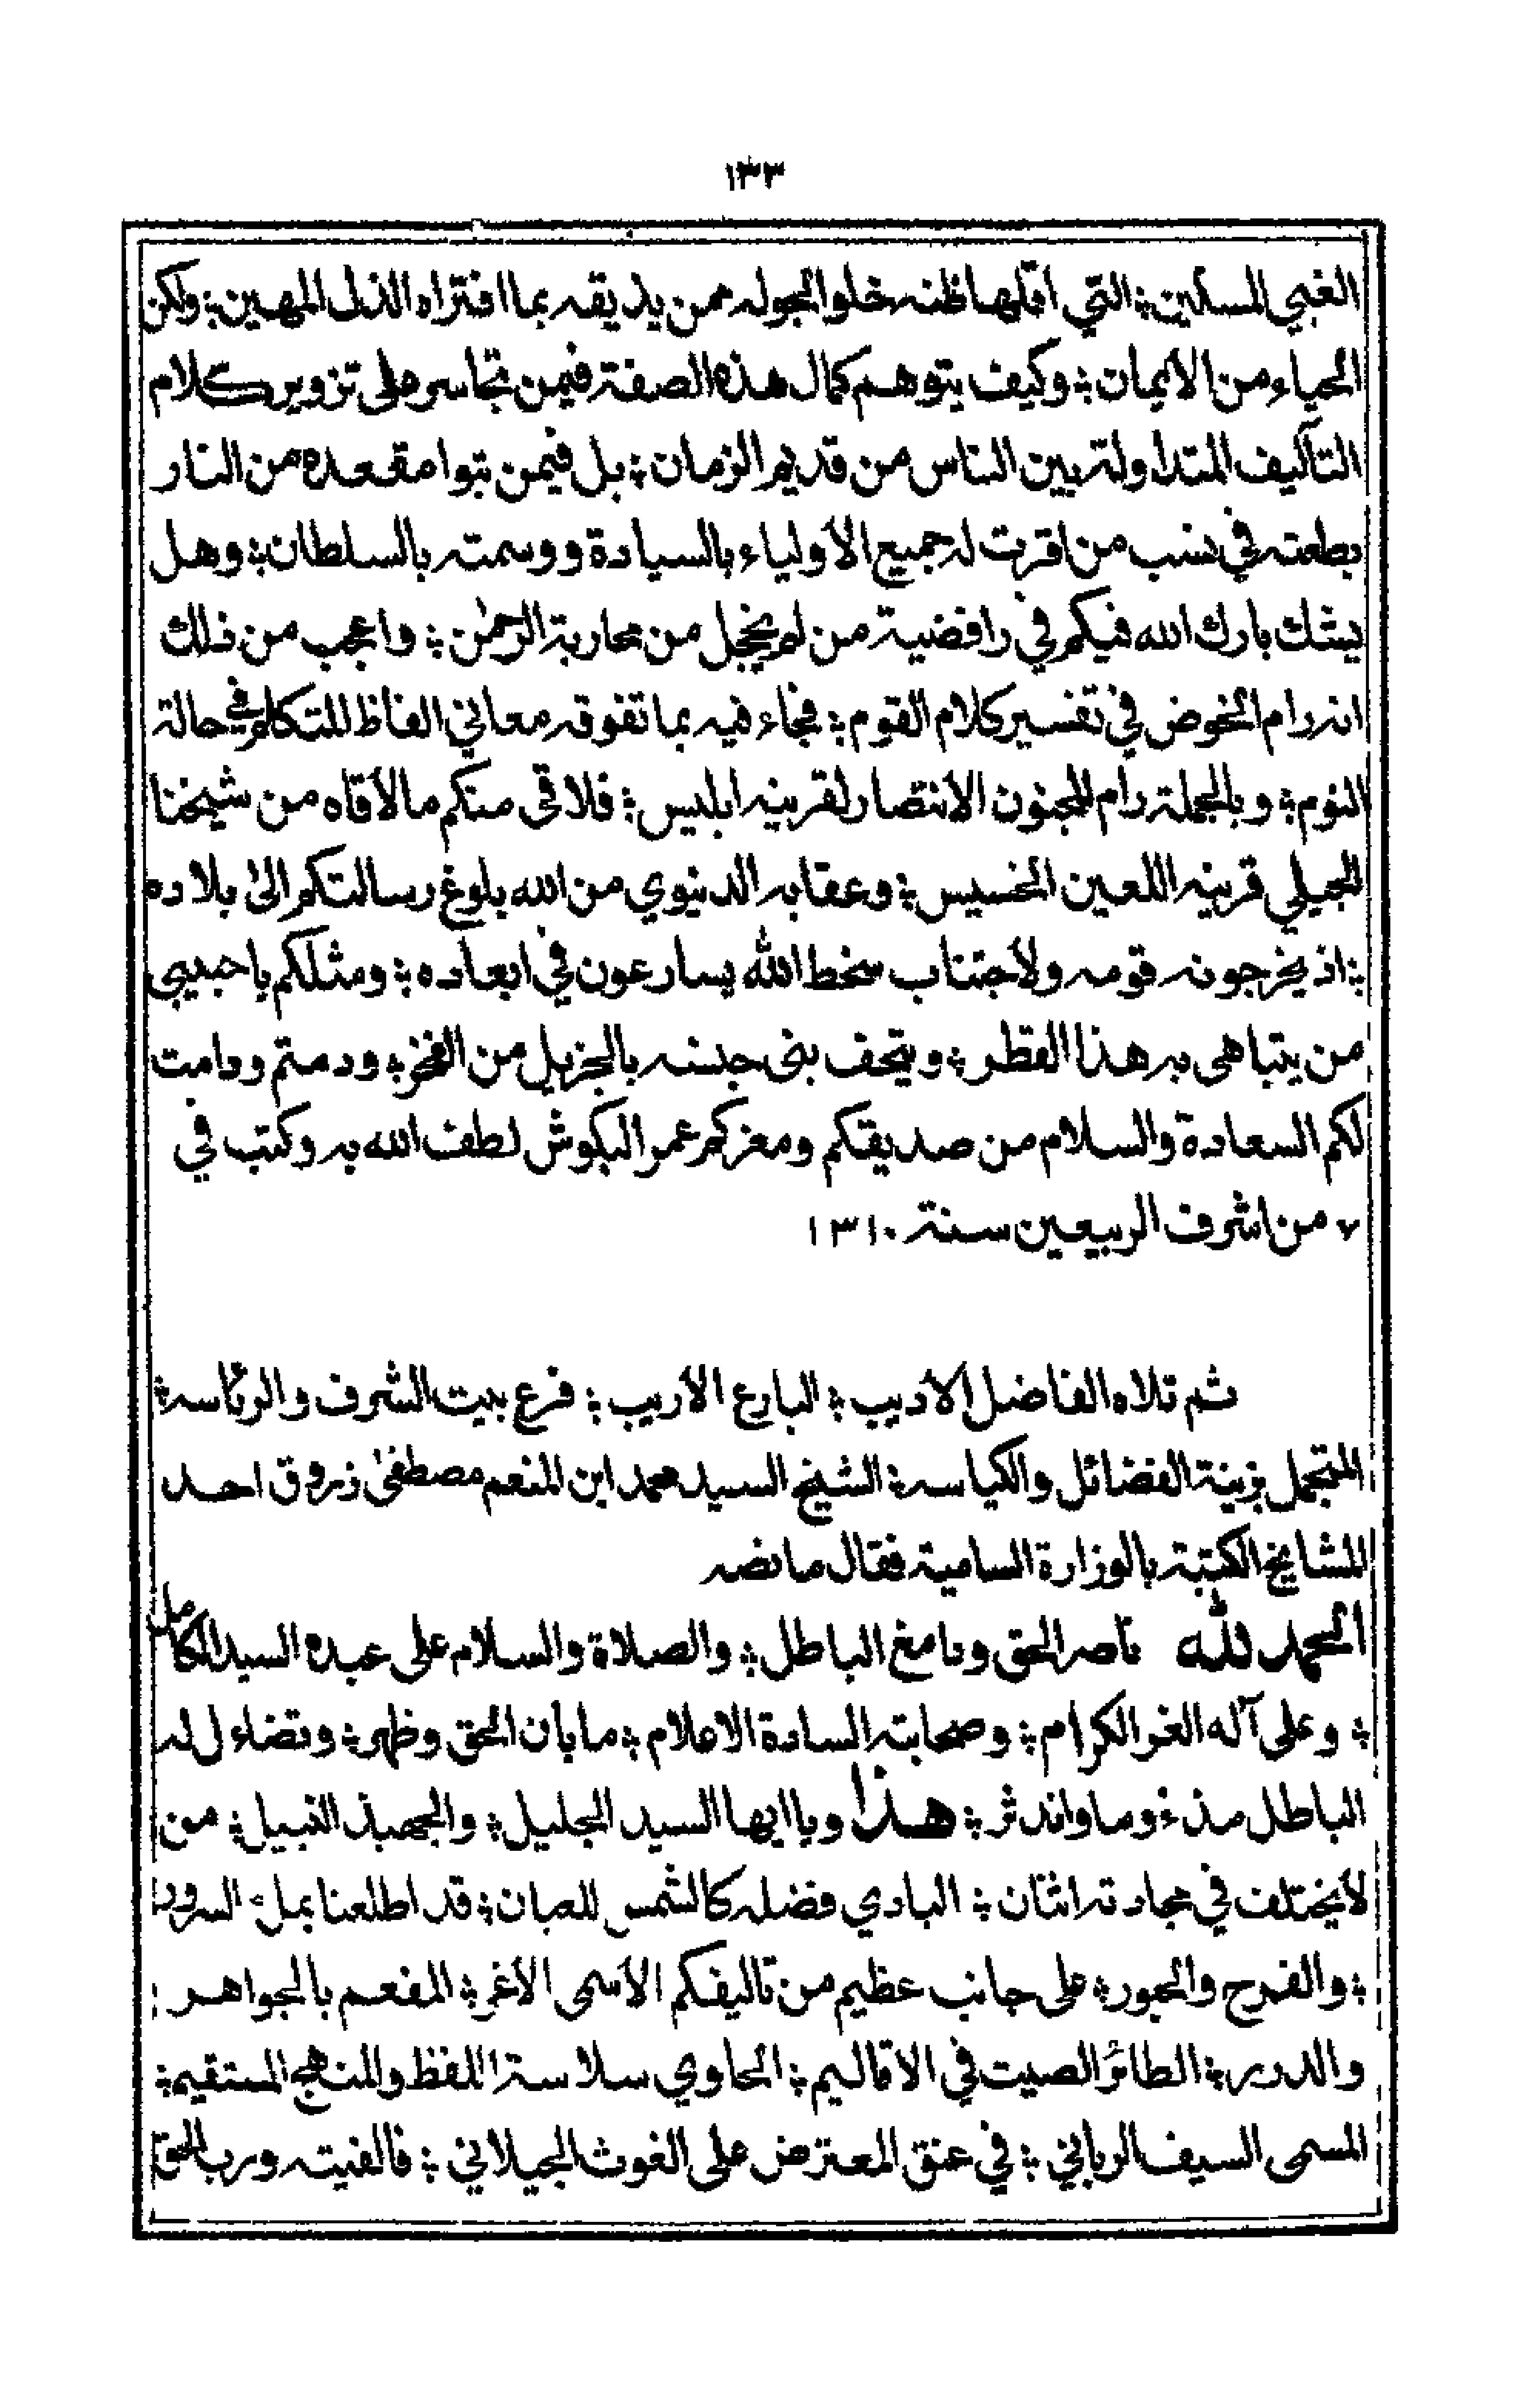 ١٣٣
الغبي المسكين ؛ التي اقلها ظنه خلو الجوله ممن يذيقه بما افتراه الذل المهين ؛ ولكن
الحياء من الايمان ؛ وكيف يتوهم كمال هذه الصفة فيمن تجاسر على تزوير كلام
التآليف المتداولة بين الناس من قديم الزمان ؛ بل فيمن تبوا مقعده من النار
بطعنه في نسب من اقرت له جميع الأولياء بالسيادة ووسمته بالسلطان ؛ وهل
يشك بارك الله فيكم في رافضية من لم يخجل من محاربة الرحمٰن ؛ واعجب من ذلك
انه رام الخوض في تفسير كلام القوم ؛ فجاء فيه بما تفوقه معاني الفاظ المتكلم في حالة
النوم ؛ وبالجملة رام المجنون الانتصار لقرينه ابليس ؛ فلاقى منكم ما لاقاه من شيخنا
الجيلي قرينه اللعين الخسيس ؛ وعقابه الدنيوي من الله بلوغ رسالتكم الى بلاده
؛ اذ يخرجونه قومه ولاجتناب سخط الله يسارعون في ابعاده ؛ ومثلكم يا حبيبي
من يتباهى به هذا القطر ؛ ويتحف بنى جنسه بالجزيل من الفخر ؛ ودمتم ودامت
لكم السعادة والسلام من صديقكم ومعزكم عمر البكوش لطف الله به وكتب في
٧ من اشرف الربيعين سنة ١٣١٠
ثم تلاه الفاضل الأديب ؛ البارع الأريب ؛ فرع بيت الشرف والرئاسه ؛
المتجمل بزينة الفضائل والكياسه ؛ الشيخ السيد محمد ابن المنعم مصطفى زروق احد
المشايخ الكتبة بالوزارة السامية فقال ما نصه
الحمد لله ناصر الحق ودامغ الباطل ؛ والصلاة والسلام على عبده السيد الكامل
؛ وعلى آله الغر الكرام ؛ وصحابته السادة الاعلام ؛ ما بان الحق وظهر ؛ وتضاءل له
الباطل مذءوما واندثر ؛ هذا ويا ايها السيد الجليل ؛ والجهبذ النبيل ؛ من
لا يختلف في مجادته اثنان ؛ البادي فضله كالشمس للعيان ؛ قد اطلعنا بملء السرور
؛ والفرح والحبور ؛ على جانب عظيم من تاليفكم الأسمى الأغر ؛ المفعم بالجواهر
والدرر ؛ الطائر الصيت في الاقاليم ؛ الحاوي سلاسة اللفظ والمنهج المستقيم ؛
المسمى السيف الرباني ؛ في عنق المعترض على الغوث الجيلاني ؛ فالفيته ورب الحق